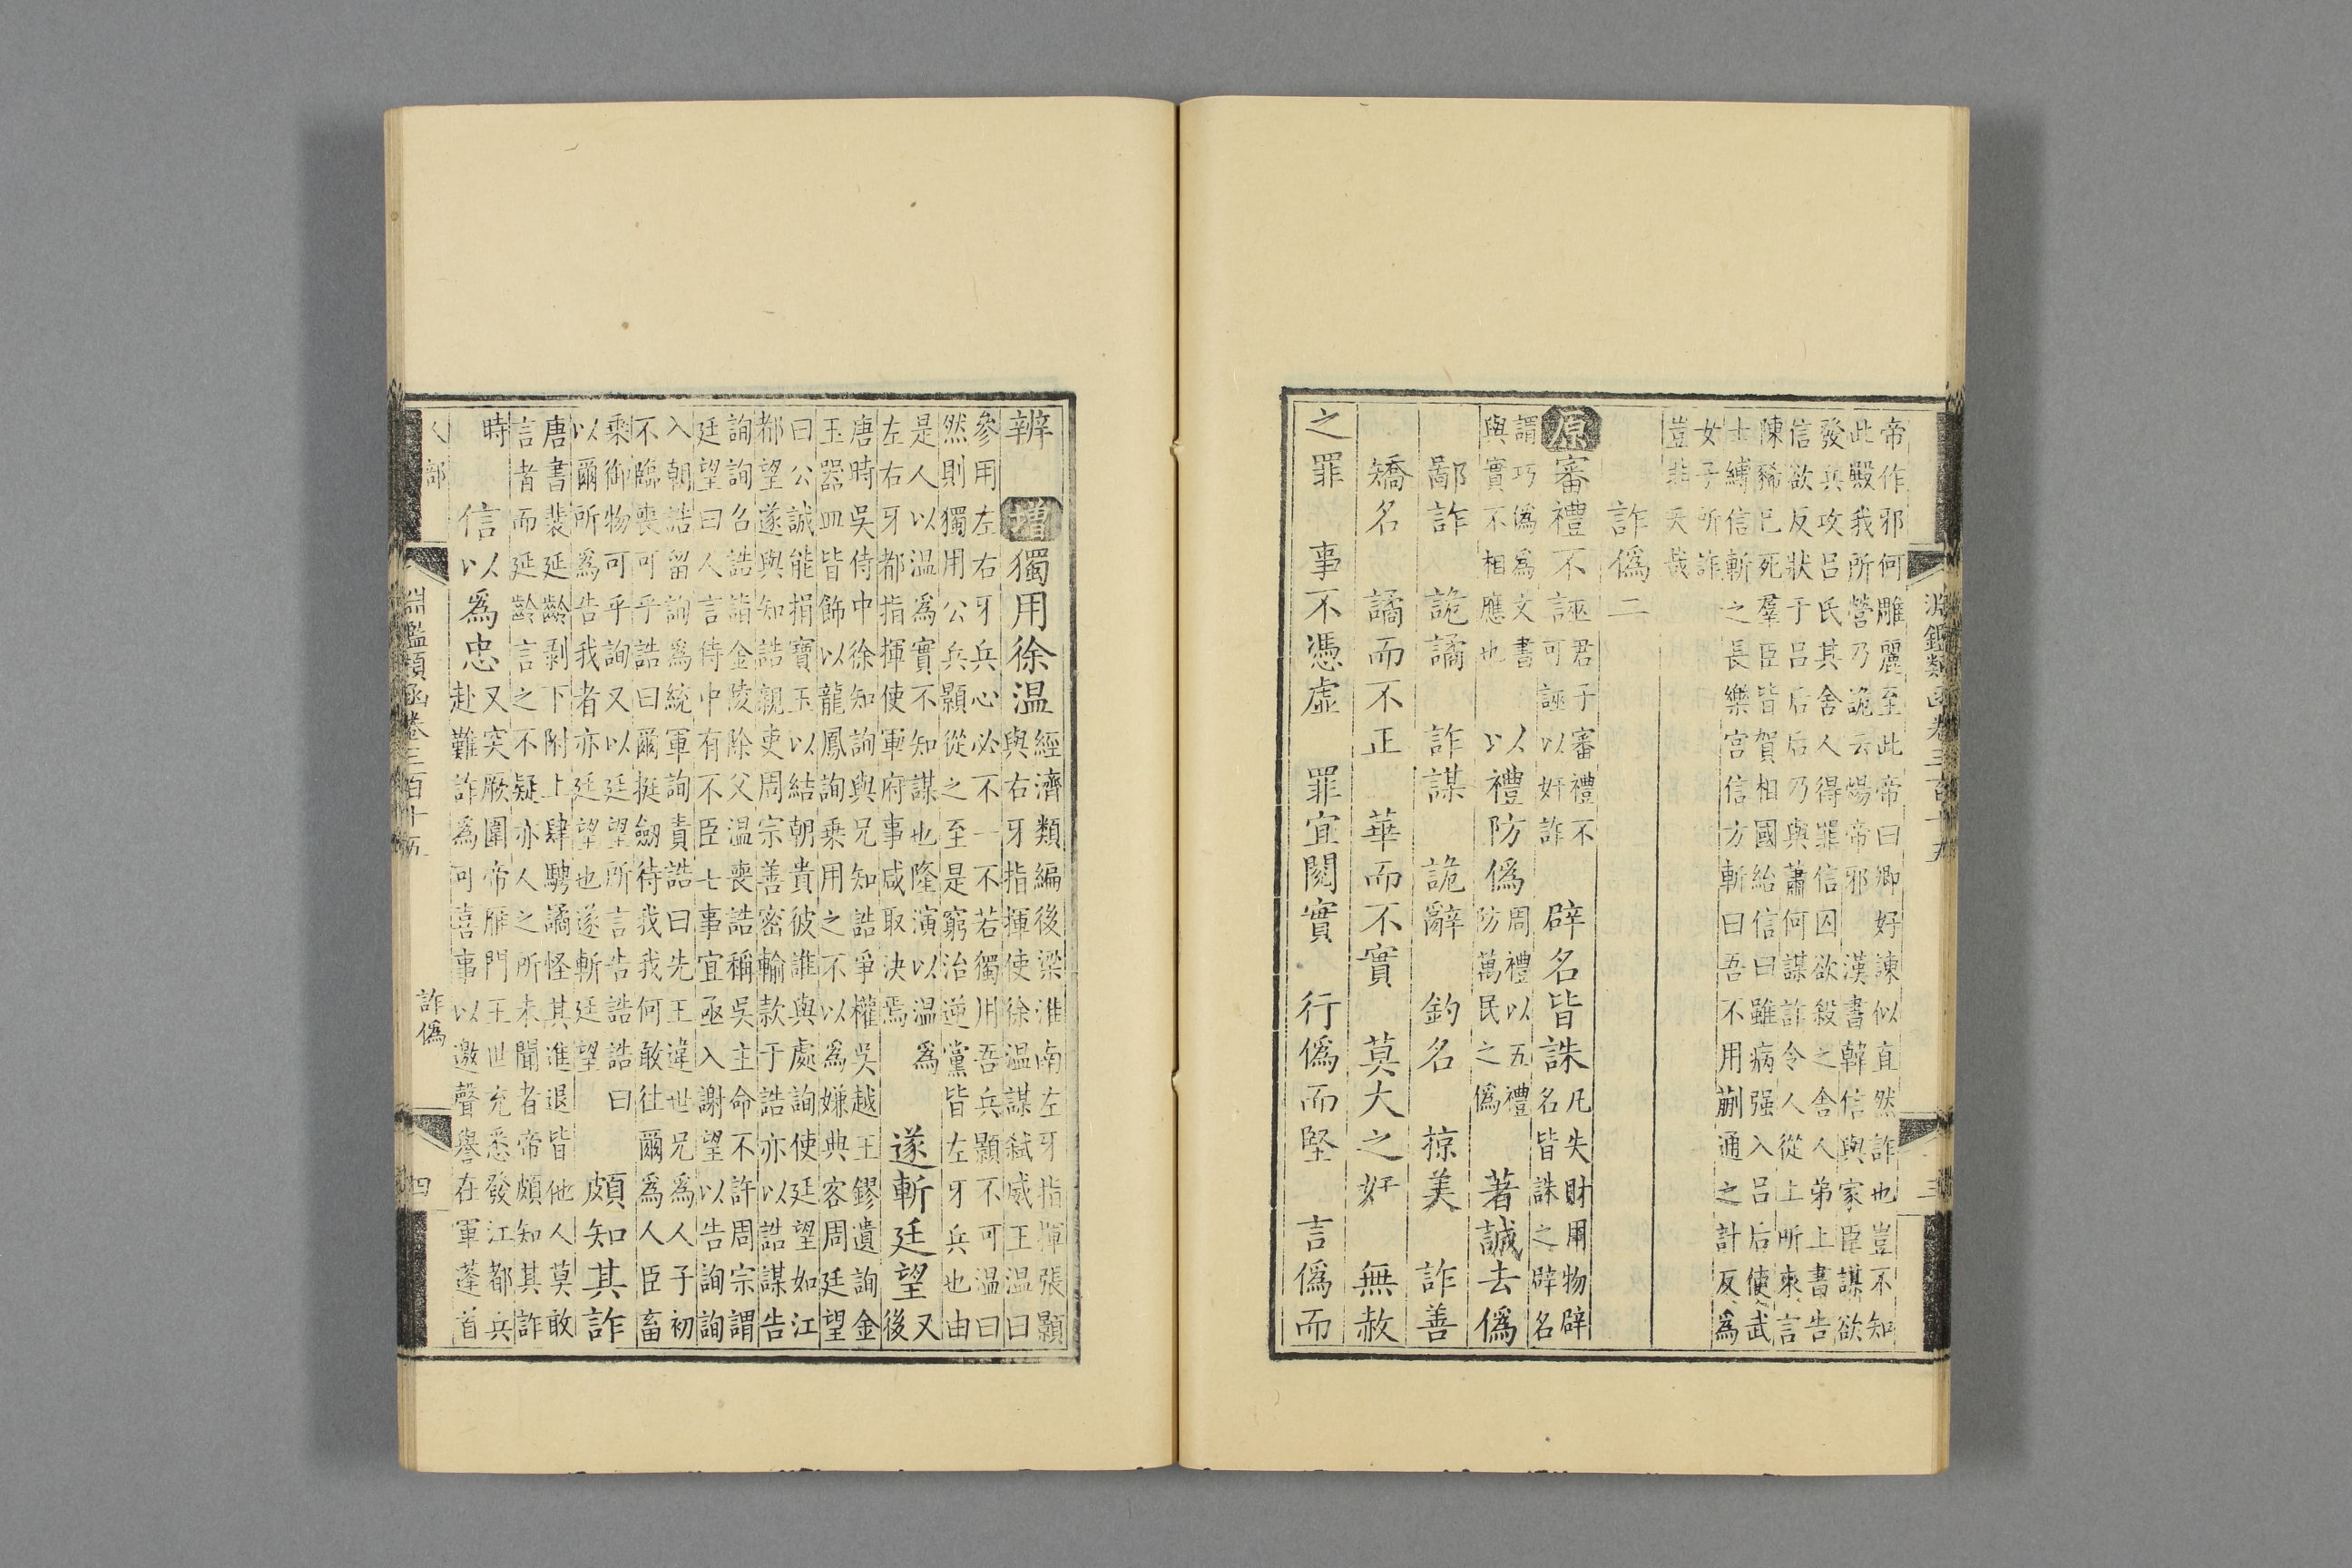 淵鑑類函卷三百十五 三
帝作邪何雕麗至此帝曰卿好諫似直然詐也豈不知
此殿我所營乃詭云煬帝邪 漢書韓信與家臣謀欲
發兵攻呂氏其舍人得罪信囚欲殺之舍人弟上書告
信欲反狀于呂后后乃與蕭何謀詐令人從上所來言
陳豨已死羣臣皆賀相國紿信曰雖病强入呂后使武
士縛信斬之長樂宮信方斬曰吾不用蒯通之計反爲
女子所詐
豈非天哉
詐僞二
原審禮不誣 君子審禮不可誣以奸詐 辟名皆誅 凡失財用物辟名皆誅之辟名
謂巧僞爲文書與實不相應也 以禮防僞 周禮以五禮防萬民之僞 著誠去僞
鄙詐 詭譎 詐謀 詭辭 釣名 掠美 詐善
矯名 譎而不正 華而不實 莫大之奸 無赦
之罪 事不憑虛 罪宜閱實 行僞而堅 言僞而
辨 增獨用徐温 經濟類編後梁淮南左牙指揮張顥與右牙指揮使徐温謀弑威王温曰
參用左右牙兵心必不一不若獨用吾兵顥不可温曰
然則獨用公兵顥從之至是窮治逆黨皆左牙兵也由
是人以温爲實不知謀也隆演以温爲
左右牙都指揮使軍府事咸取決焉 遂斬廷望 又後
唐時吳侍中徐知詢與兄知誥爭權吳越王鏐遺詢金
玉器皿皆飾以龍鳳詢乗用之不以爲嫌典客周廷望
曰公誠能捐寶玉以結朝貴彼誰與處詢使廷望如江
都望遂與知誥親吏周宗善密輸款于誥亦以誥謀告
詢詢召誥詣金陵除父温喪誥稱吳主命不許周宗謂
廷望曰人言侍中有不臣七事宜亟入謝望以告詢詢
入朝誥留詢爲統軍詢責誥曰先王違世兄爲人子初
不臨喪可乎誥曰爾挺劒待我我何敢往爾爲人臣畜
乗御物可乎詢又以廷望所言告誥誥曰
以爾所爲告我者亦廷望也遂斬廷望 頗知其詐
唐書裴延齡剥下附上肆騁譎怪其進退皆他人莫敢
言者而延齡言之不疑亦人之所未聞者帝頗知其詐
時 信以爲忠 又突厥圍帝雁門王世充悉發江都兵赴難詐爲可喜事以邀聲譽在軍蓬首
人部 淵鑑類函卷三百十五 詐僞 四